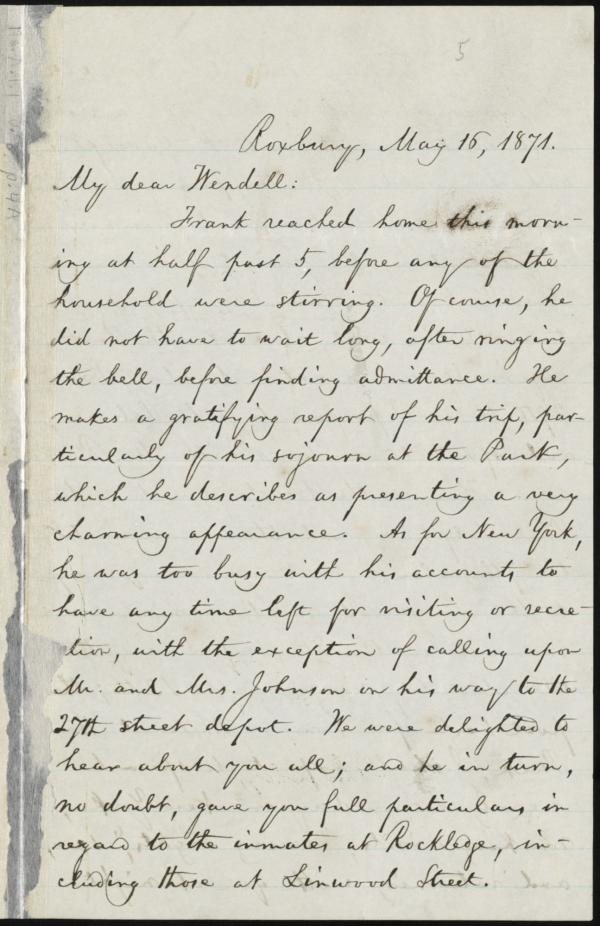 5
Roxbury, May 16, 1871.
My dear Wendell:
Frank reached home this morn-
ing at half past 5, before any of the
household were stirring. Of course, he
did not have to wait long, after ringing
the bell, before finding admittance. He
makes a gratifying report of his trip, par-
ticularly of his sojourn at the Park,
which he describes as presenting a very
charming appearance. As for New York,
he was too busy with his accounts to
have any time left for visiting or recre-
tion, with the exception of calling upon
Mr. and Mrs. Johnson on his way to the
27th street depot. We were delighted to
hear about you all; and he in turn,
no doubt, gave you full particulars in
regard to the inmates at Rockledge, in-
cluding those at Linwood Street.